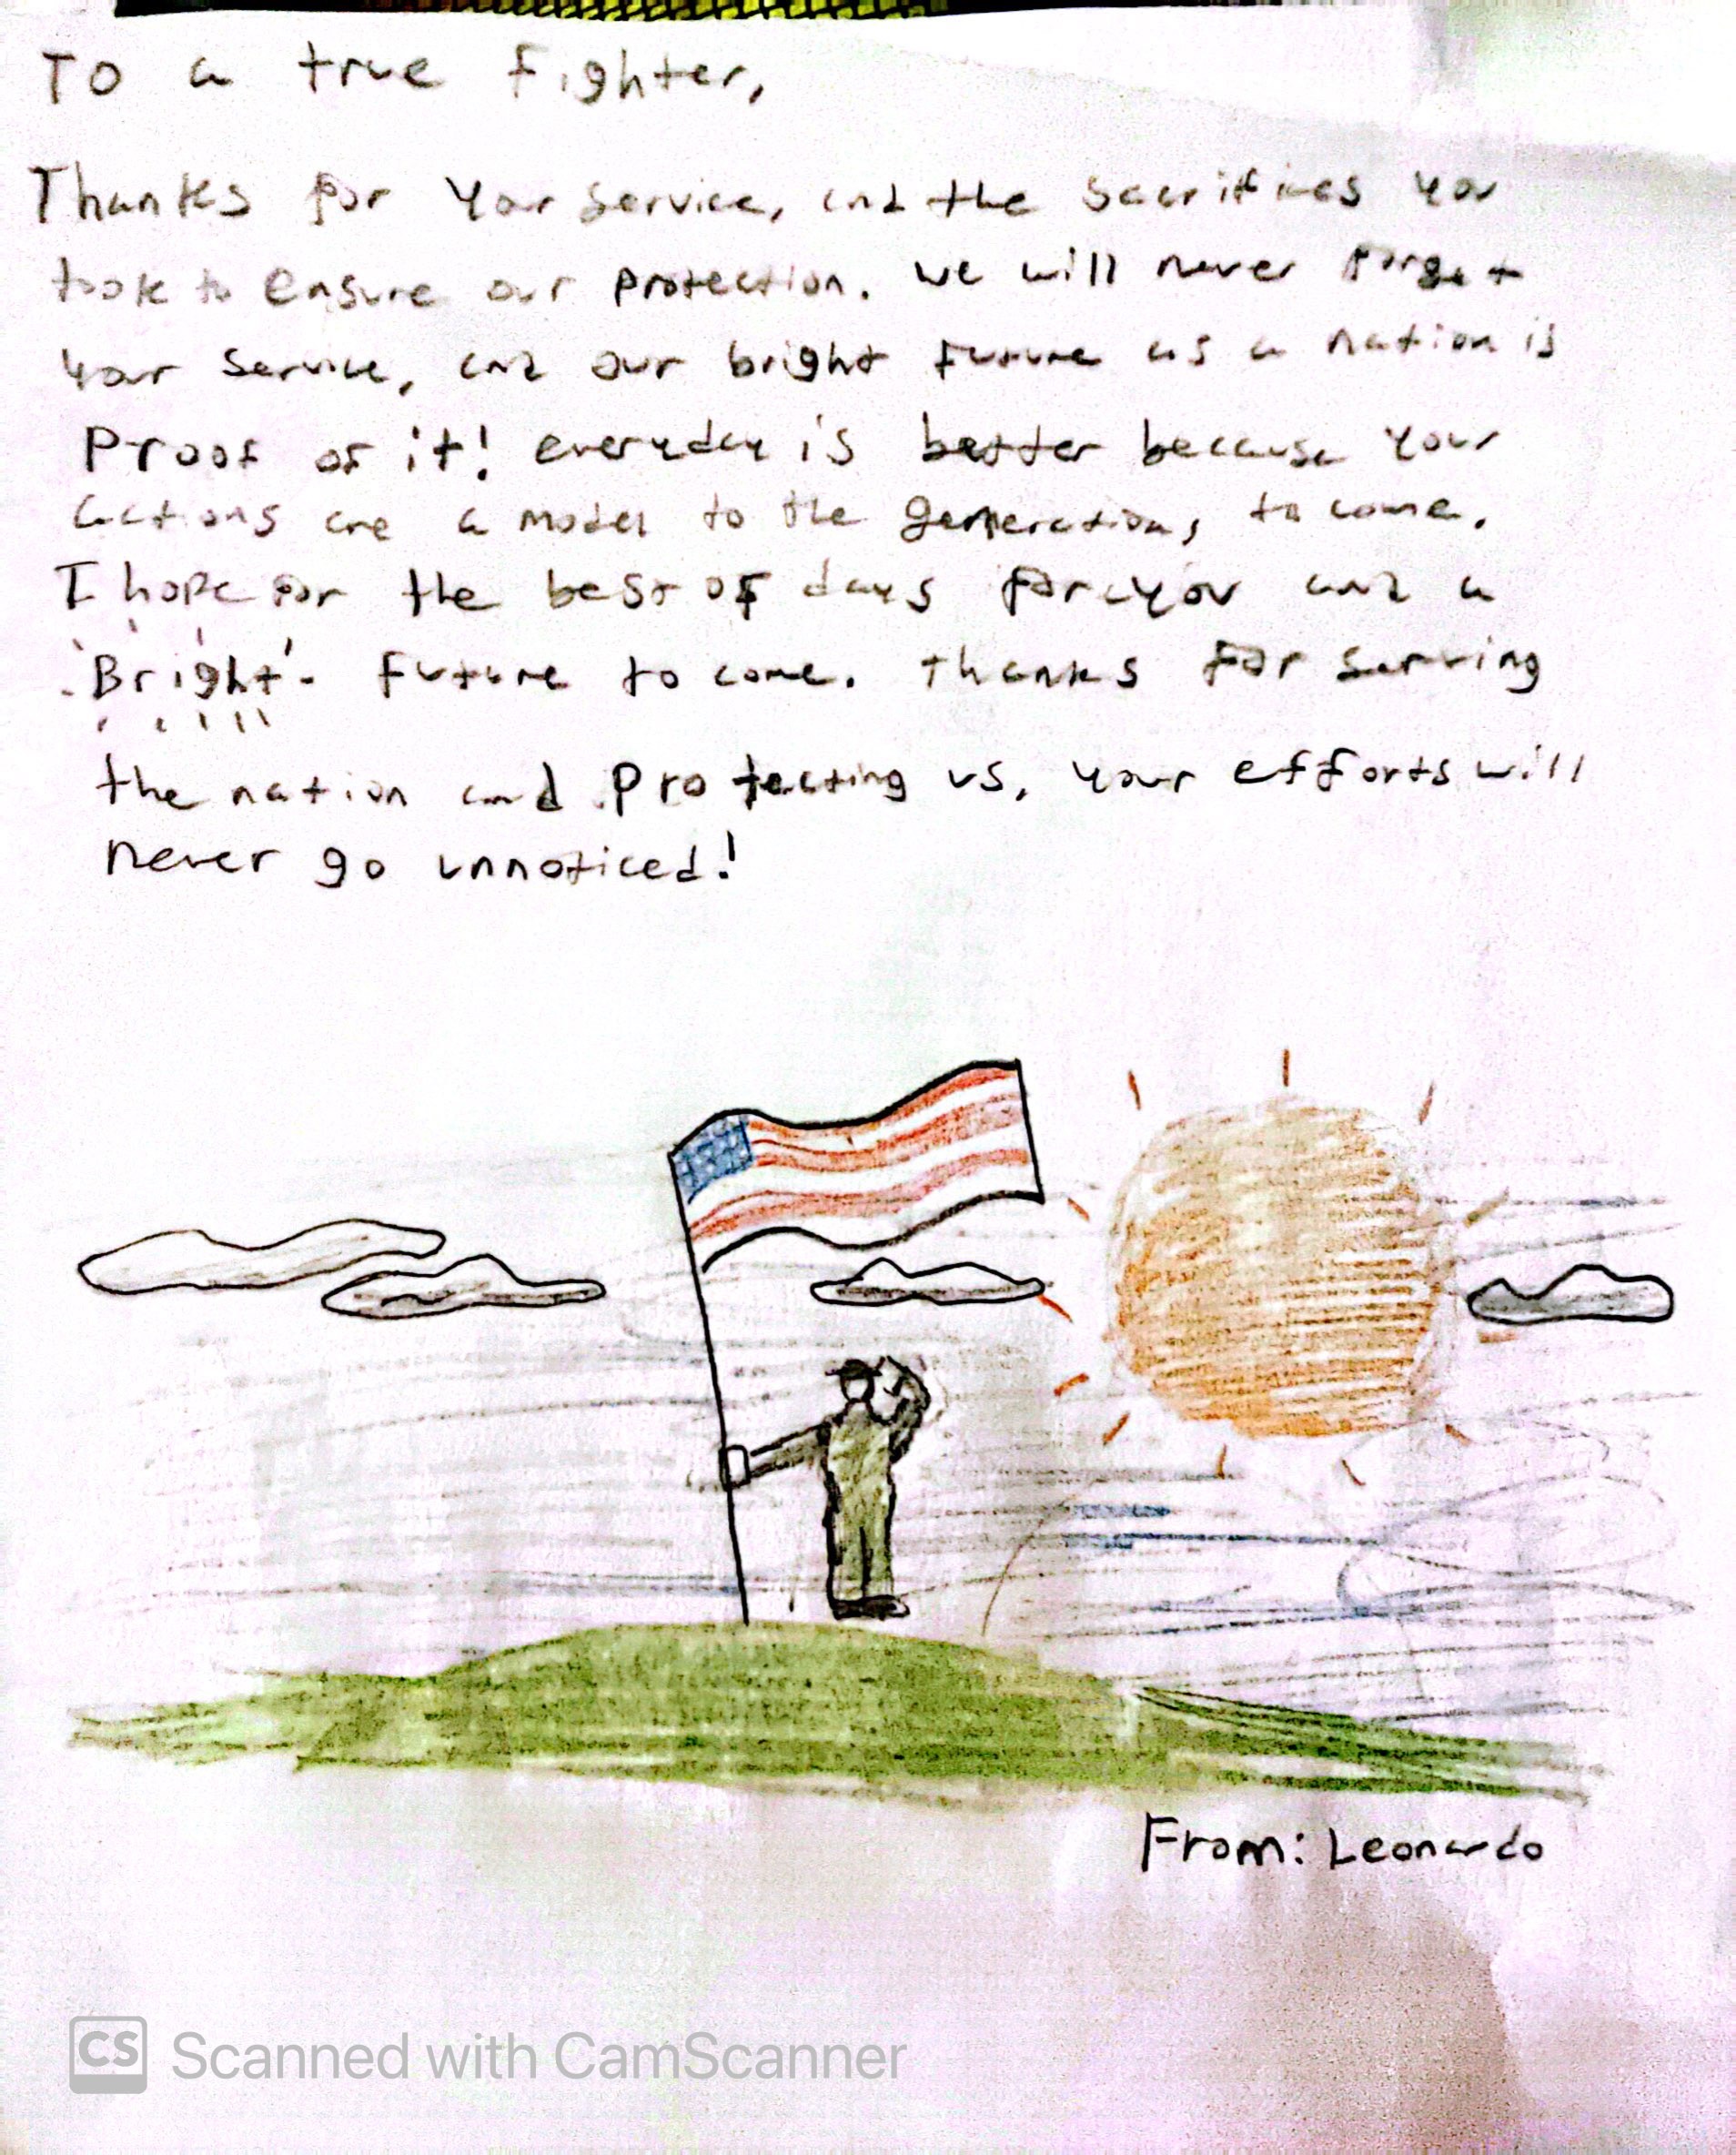 To a true Fighter,
Thanks for your service, and the sacrifices you
took to ensure our protection. we will never forget
your service, and our bright future as a nation is
Proof of it! everyday is better because your
actions are a model to the generations to come.
I hope for the best of days for you and a
Bright future to come. thanks for serving
the nation and Protecting us, your efforts will
never go unnoticed!
From: Leonardo
CS Scanned with CamScanner